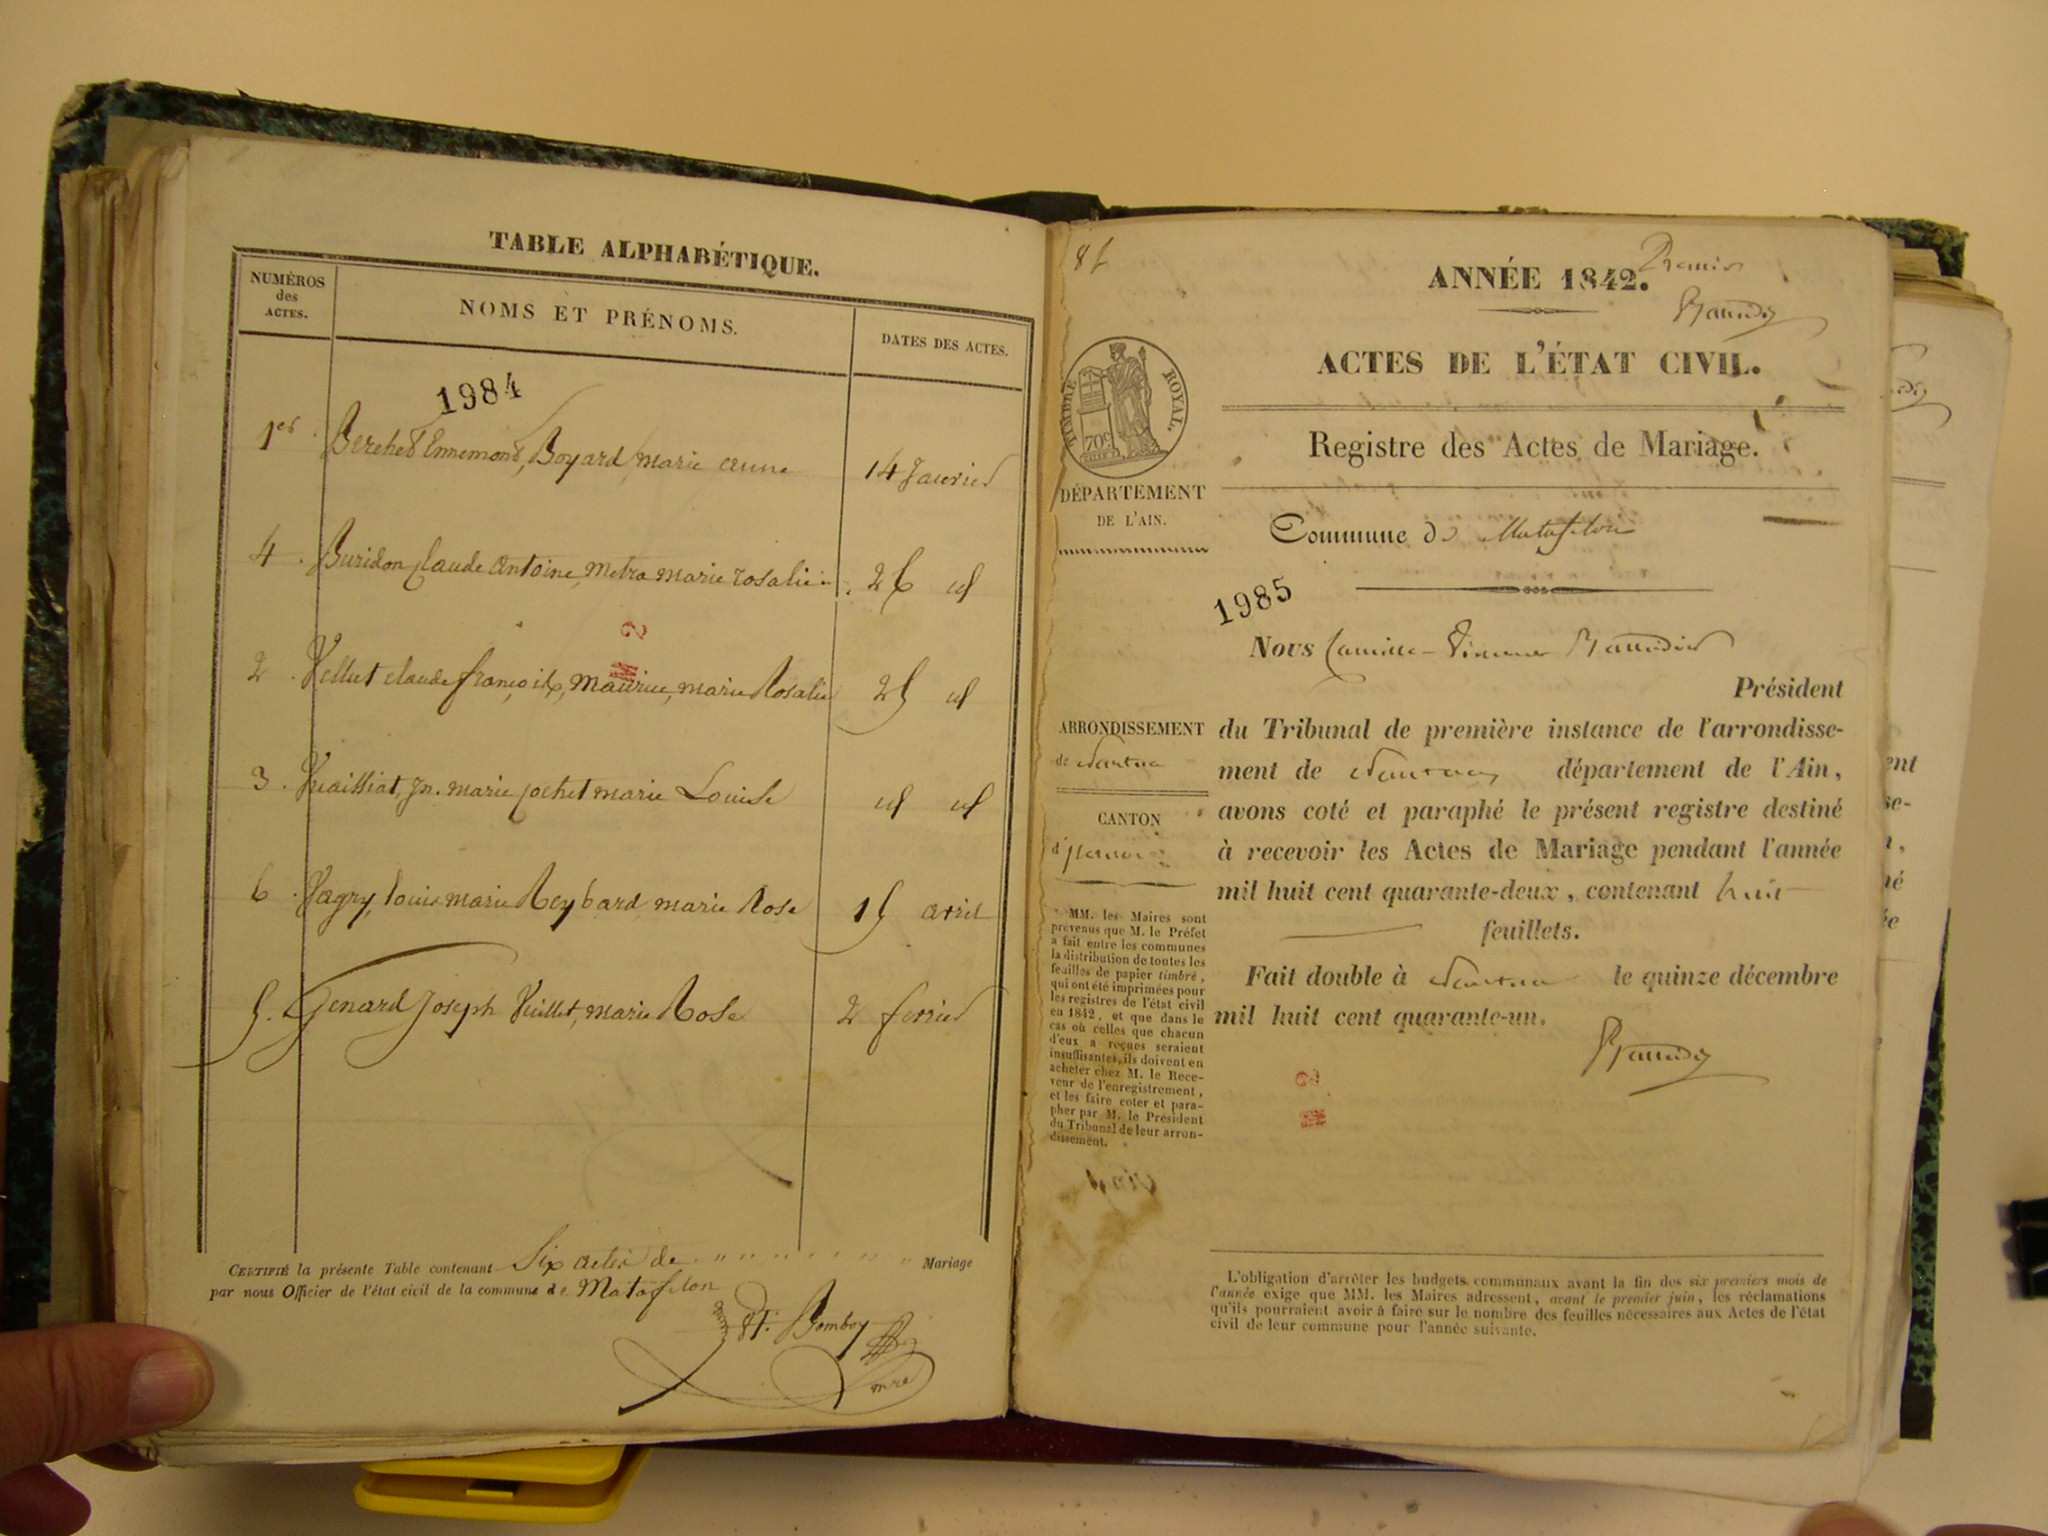 TABLE ALPHABÉTIQUE.
NUMÉROS
des
ACTES.
NOMS ET PRÉNOMS.
DATES DES ACTES.
1984
1er Berthet Ennemond, Boyard marie anne 14 Janvier
4. Buridon Claude Antoine, Metra marie rosalie 26 id
2. Vellut claude françois, maurice, marie Rosalie 25 id
3. Vuailliat, Jn. marie Jochet marie Louise id id
6. Vagry, louis marie Reybard marie Rose 15 avril
5. Genard Joseph Vuillet, marie Rose 2 fevrier
CERTIFIÉ la présente Table contenant Six actes de " " " " " " " " Mariage
par nous Officier de l'état civil de la commune de Matafelon
Bomboy
mre
Premier
ANNÉE 1842.
ACTES DE L'ÉTAT CIVIL.
TIMBRE ROYAL.
70c
Registre des Actes de Mariage.
DÉPARTEMENT
DE L'AIN.
Commune de Matafelon
1985
Nous Camille
Président
ARRONDISSEMENT
de Nantua
CANTON
du Tribunal de première instance de l'arrondisse-
ment de Nantua département de l'Ain,
avons coté et paraphé le présent registre destiné
à recevoir les Actes de Mariage pendant l'année
mil huit cent quarante-deux, contenant huit
feuillets.
Fait double à Nantua le quinze décembre
mil huit cent quarante-un.
MM. les Maires sont
prévenus que M. le Préfet
a fait entre les communes
la distribution de toutes les
feuilles de papier timbré,
qui ont été imprimées pour
les registres de l'état civil
en 1842, et que dans le
cas où celles que chacun
d'eux a reçues seraient
insuffisantes, ils doivent en
acheter chez M. le Rece-
veur de l'enregistrement,
et les faire coter et para-
pher par M. le Président
du Tribunal de leur arron-
dissement.
L'obligation d'arrêter les budgets communaux avant la fin des six premiers mois de
l'année exige que MM. les Maires adressent, avant le premier juin, les réclamations
qu'ils pourraient avoir à faire sur le nombre des feuilles nécessaires aux Actes de l'état
civil de leur commune pour l'année suivante.